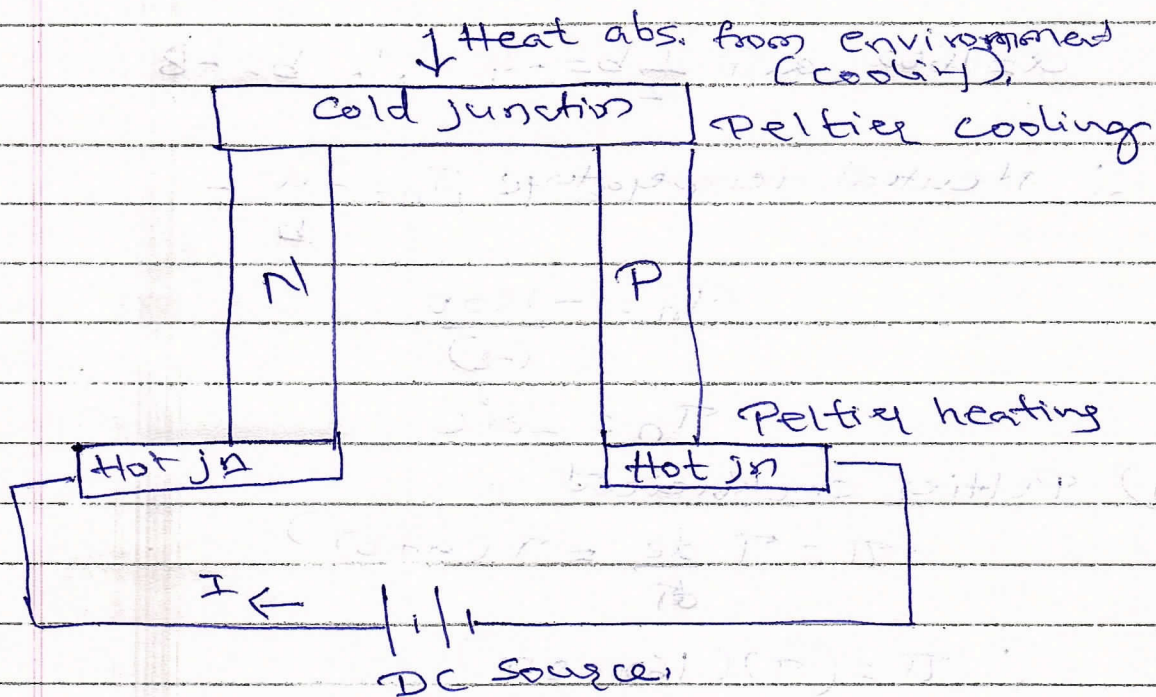 ↓ Heat abs. from environment
(cooling).
Cold junction
Peltier cooling
N
P
Peltier heating
Hot jn
Hot jn
I ←
DC source.